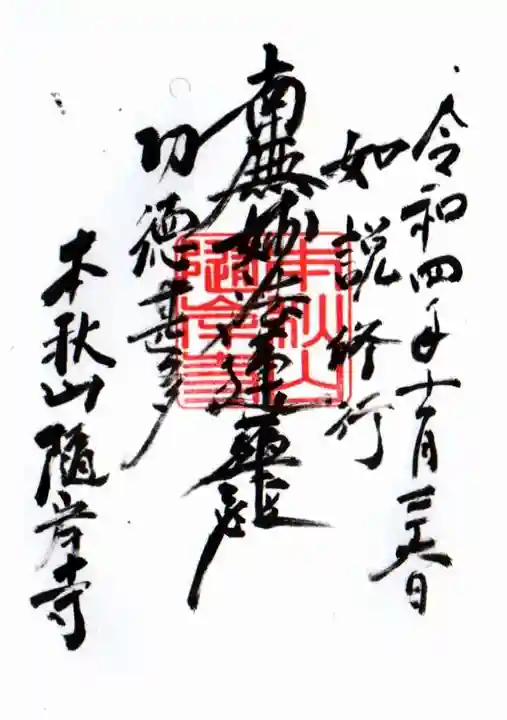 令和四年十一月二十六日
如説修行
南無妙法蓮華経
功徳甚多
本秋山隨岸寺